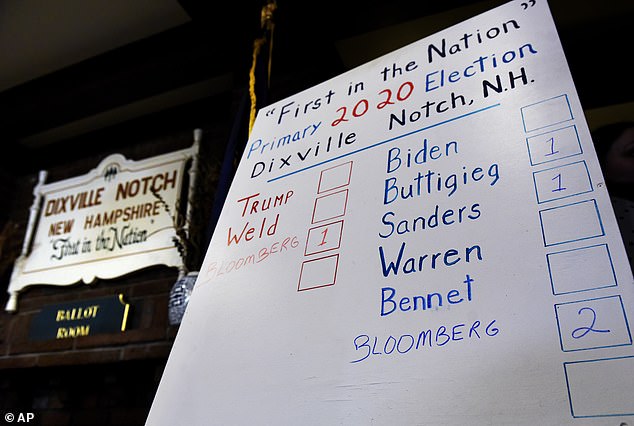 "First in the Nation"
Primary 2020 Election
Dixville Notch, N.H.
TRUMP
Weld
BLOOMBERG 1
Biden
Buttigieg 1
Sanders 1
Warren
Bennet
BLOOMBERG 2
DIXVILLE NOTCH
NEW HAMPSHIRE
"First in the Nation"
BALLOT
ROOM
© AP